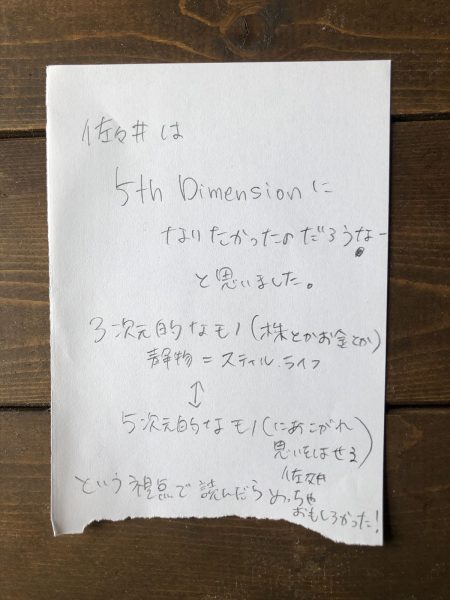 佐々井は
5th Dimensionに
なりたかったのだろうなー
と思いました。
3次元的なモノ(株とかお金とか)
静物=スティル.ライフ
↕
5次元的なモノ(にあこがれ
思いをはせる)
佐々井
という視点で読んだらめっちゃ
おもしろかった!